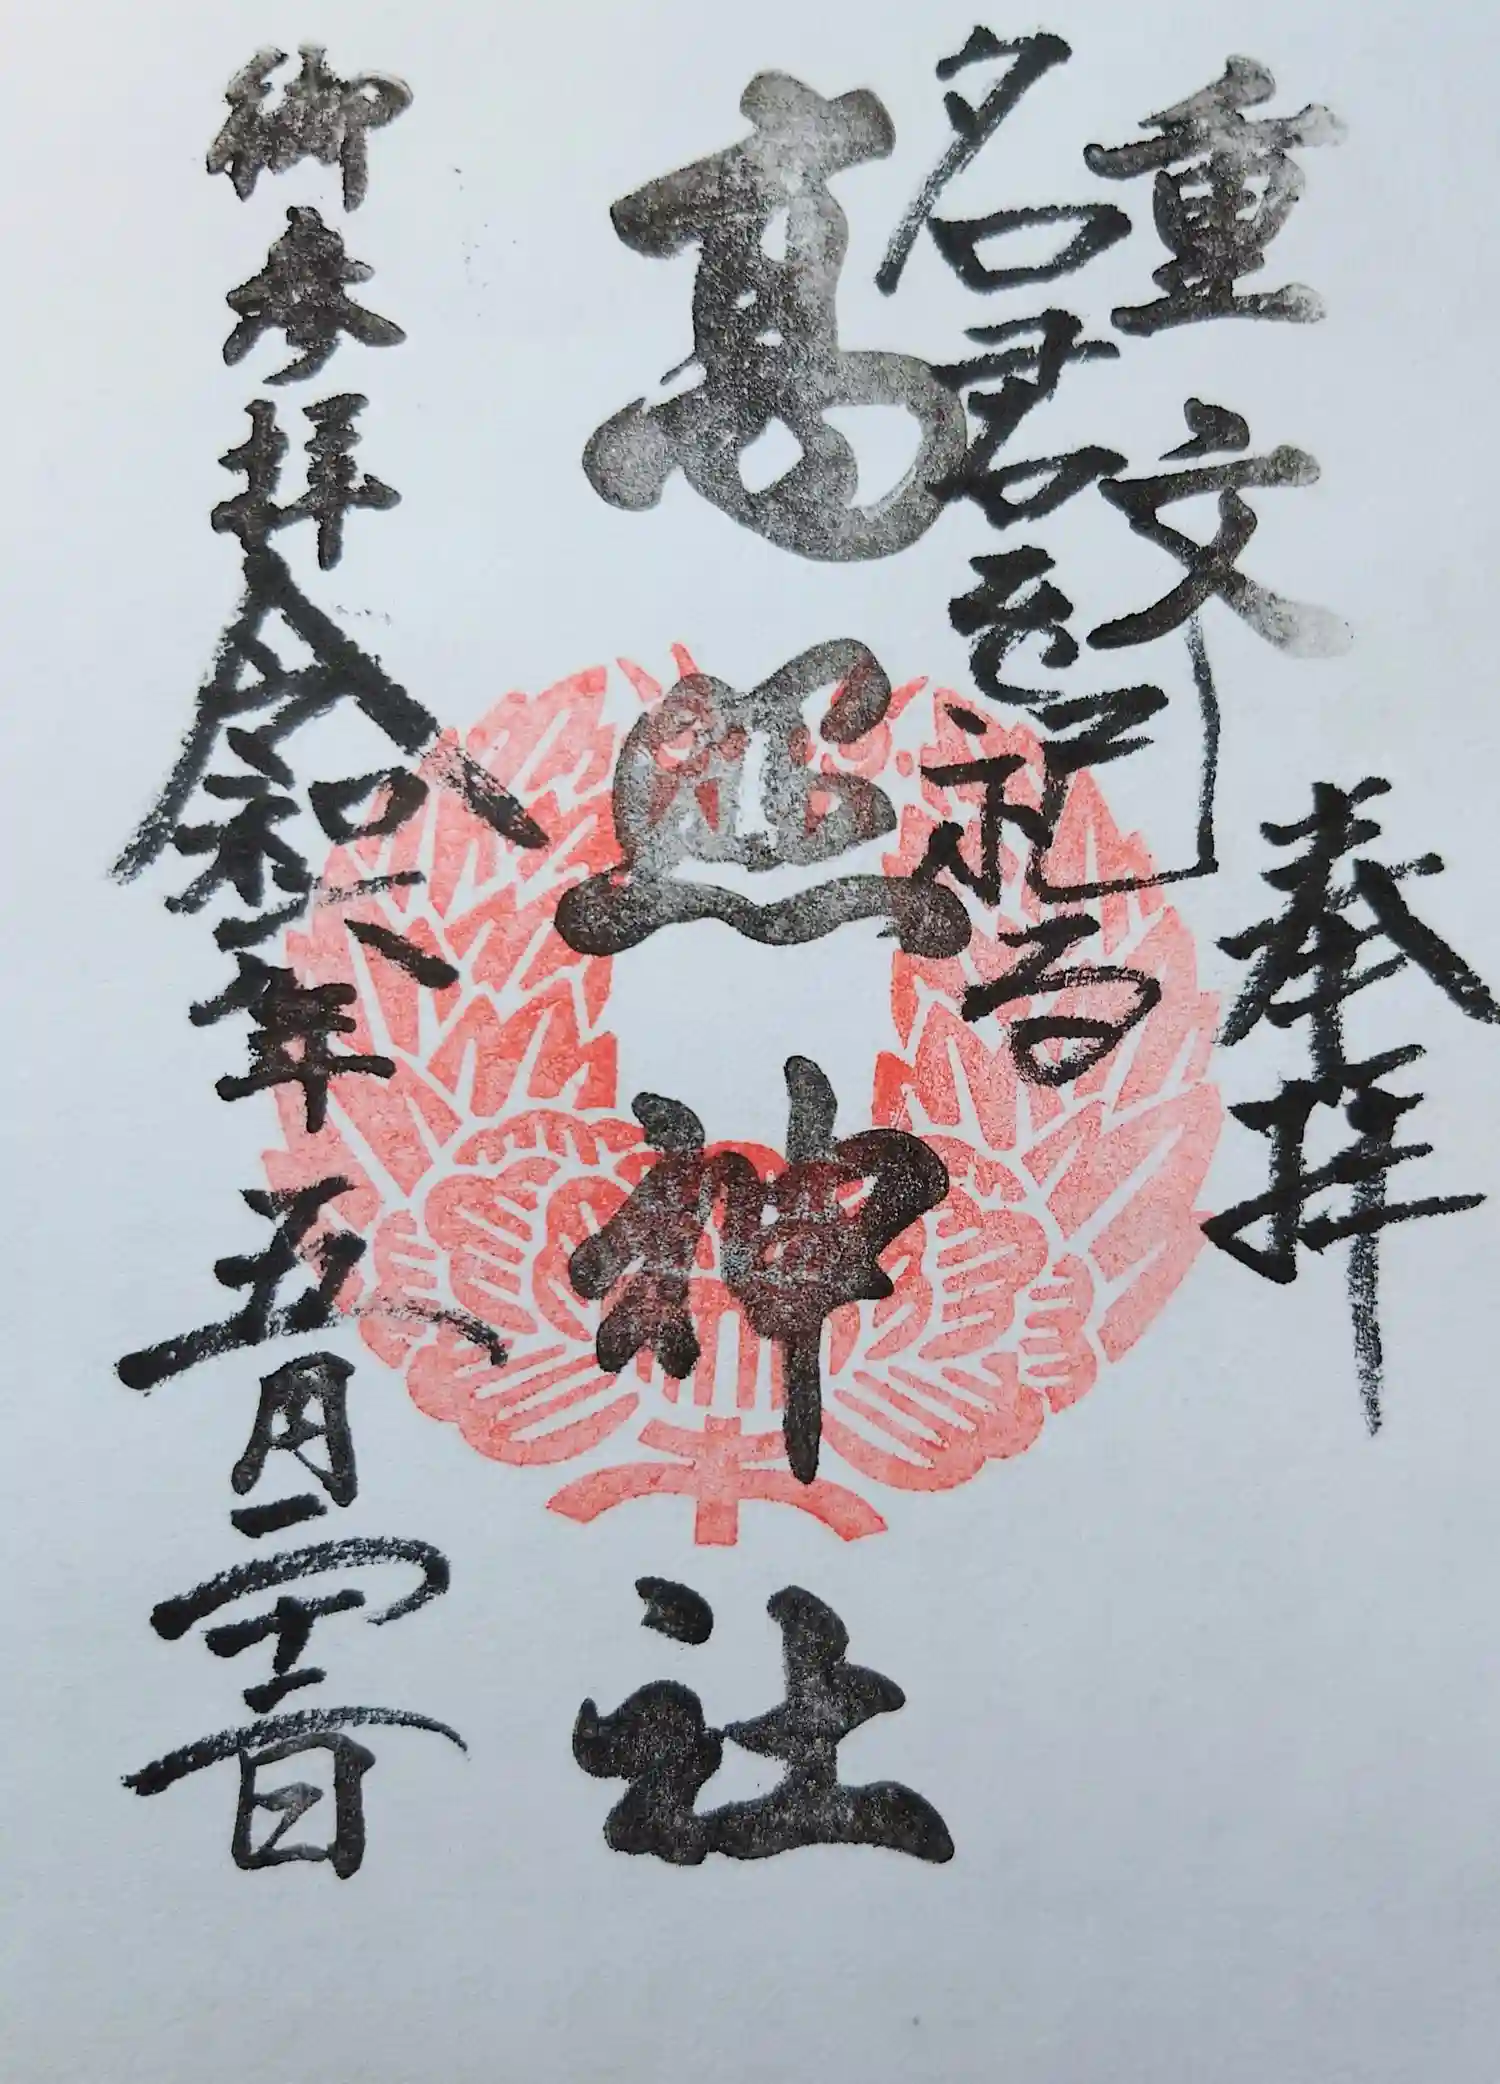 奉拝
重文
名君を祀る
高照神社
御参拝 令和六年五月二十二日